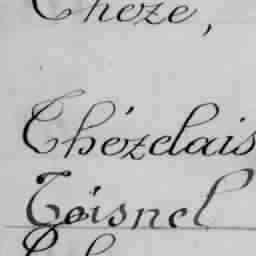 Chèze,
Chézelais
Coisnel